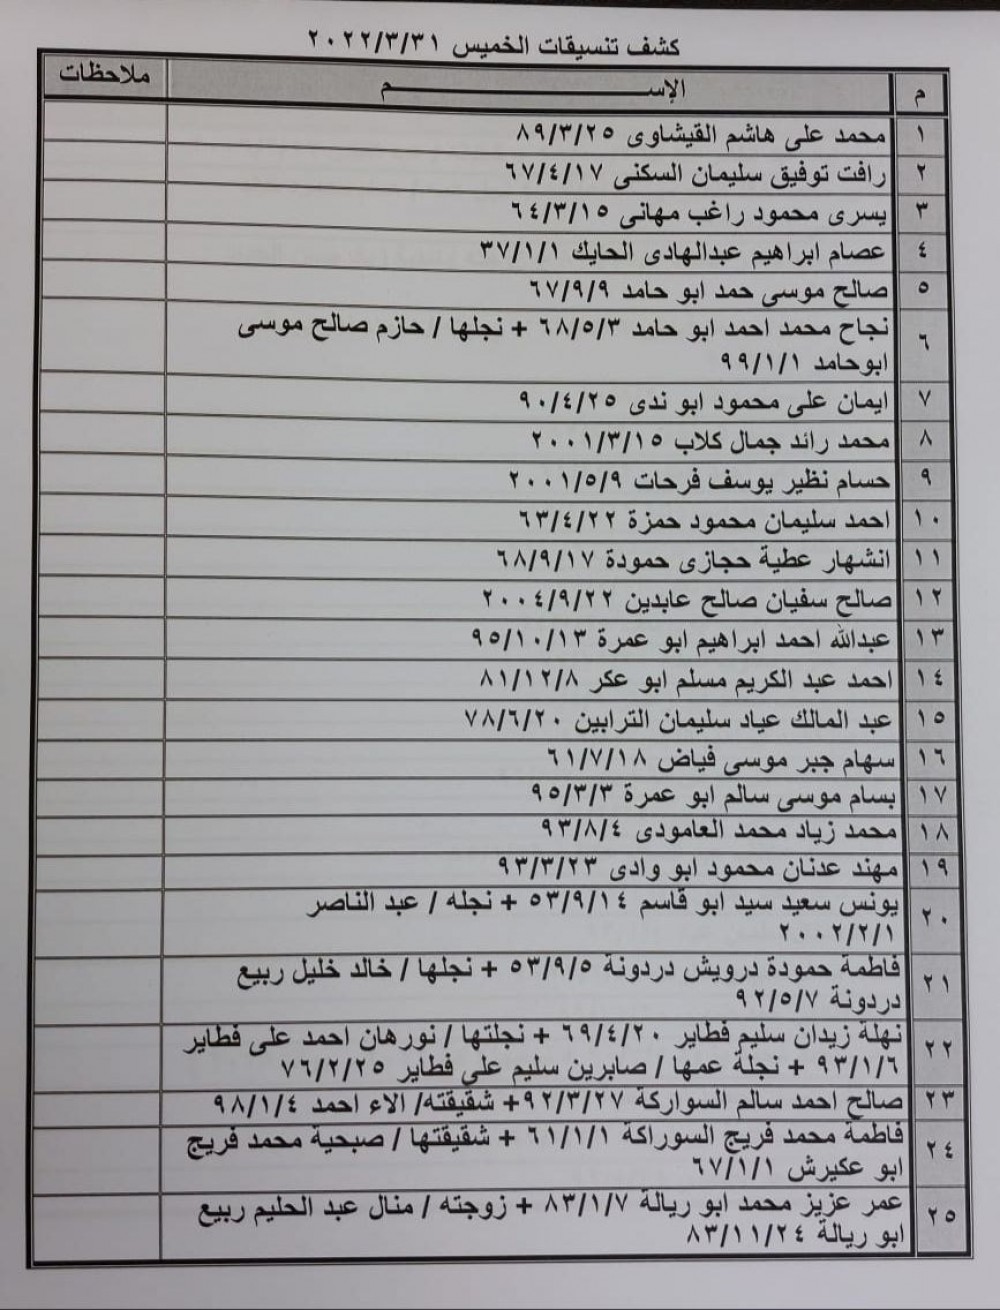 كشف تنسيقات الخميس ٢٠٢٢/٣/٣١
م الإســـــــــــــم ملاحظات
١ محمد على هاشم القيشاوى ٨٩/٣/٢٥
٢ رافت توفيق سليمان السكنى ٦٧/٤/١٧
٣ يسرى محمود راغب مهانى ٦٤/٣/١٥
٤ عصام ابراهيم عبدالهادى الحايك ٣٧/١/١
٥ صالح موسى حمد ابو حامد ٦٧/٩/٩
٦ نجاح محمد احمد ابو حامد ٦٨/٥/٣ + نجلها / حازم صالح موسى
ابوحامد ٩٩/١/١
٧ ايمان على محمود ابو ندى ٩٠/٤/٢٥
٨ محمد رائد جمال كلاب ٢٠٠١/٣/١٥
٩ حسام نظير يوسف فرحات ٢٠٠١/٥/٩
١٠ احمد سليمان محمود حمزة ٦٣/٤/٢٢
١١ انشهار عطية حجازى حمودة ٦٨/٩/١٧
١٢ صالح سفيان صالح عابدين ٢٠٠٤/٩/٢٢
١٣ عبدالله احمد ابراهيم ابو عمرة ٩٥/١٠/١٣
١٤ احمد عبد الكريم مسلم ابو عكر ٨١/١٢/٨
١٥ عبد المالك عياد سليمان الترابين ٧٨/٦/٢٠
١٦ سهام جبر موسى فياض ٦١/٧/١٨
١٧ بسام موسى سالم ابو عمرة ٩٥/٣/٣
١٨ محمد زياد محمد العامودى ٩٣/٨/٤
١٩ مهند عدنان محمود ابو وادى ٩٣/٣/٢٣
٢٠ يونس سعيد سيد ابو قاسم ٥٣/٩/١٤ + نجله / عبد الناصر
٢٠٠٢/٢/١
٢١ فاطمة حمودة درويش دردونة ٥٣/٩/٥ + نجلها / خالد خليل ربيع
دردونة ٩٢/٥/٧
٢٢ نهلة زيدان سليم فطاير ٦٩/٤/٢٠ + نجلتها / نورهان احمد على فطاير
٩٣/١/٦ + نجلة عمها / صابرين سليم على فطاير ٧٦/٢/٢٥
٢٣ صالح احمد سالم السواركة ٩٢/٣/٢٧+ شقيقته/ الاء احمد ٩٨/١/٤
٢٤ فاطمة محمد فريج السوراكة ٦١/١/١ + شقيقتها / صبحية محمد فريج
ابو عكيرش ٦٧/١/١
٢٥ عمر عزيز محمد ابو ريالة ٨٣/١/٧ + زوجته / منال عبد الحليم ربيع
ابو ريالة ٨٣/١١/٢٤